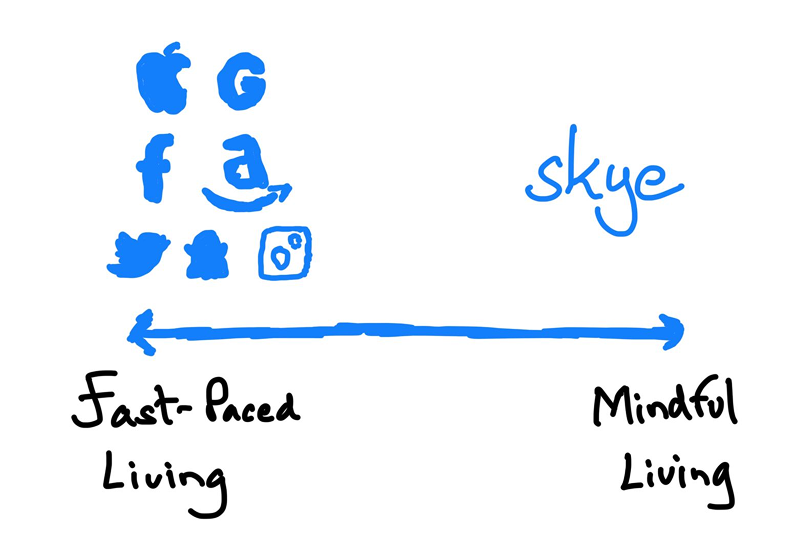 G
f
a
skye
Fast-Paced
Living
Mindful
Living